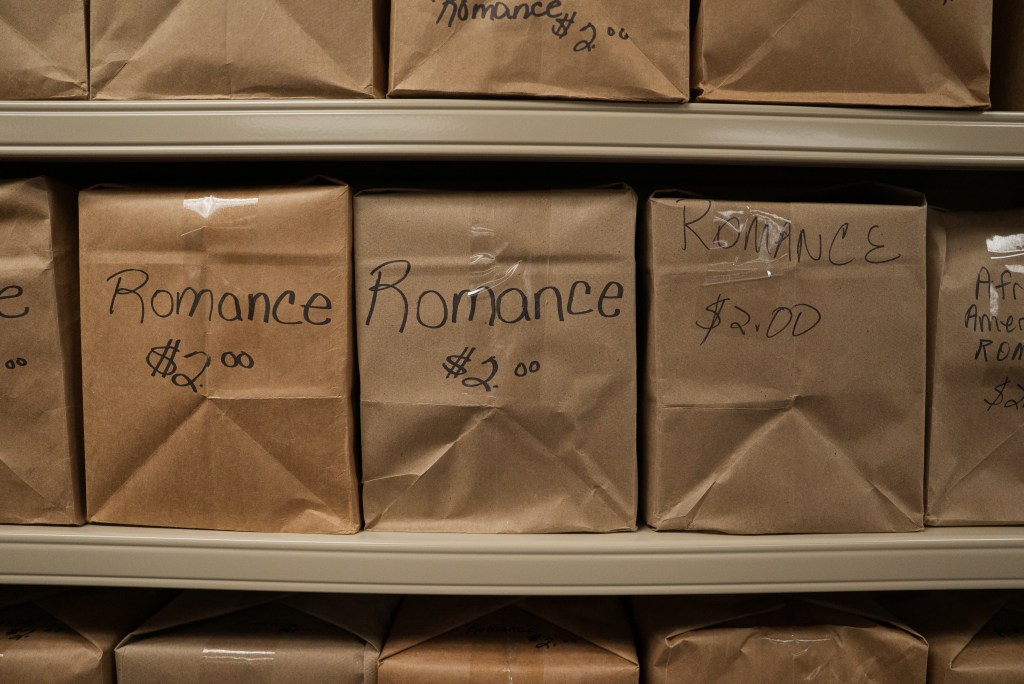 Romance
$2.00
e
.00
Romance
$2.00
Romance
$2.00
ROMANCE
$2.00
Afr
Amer
ROM
$2
Romance
$2.